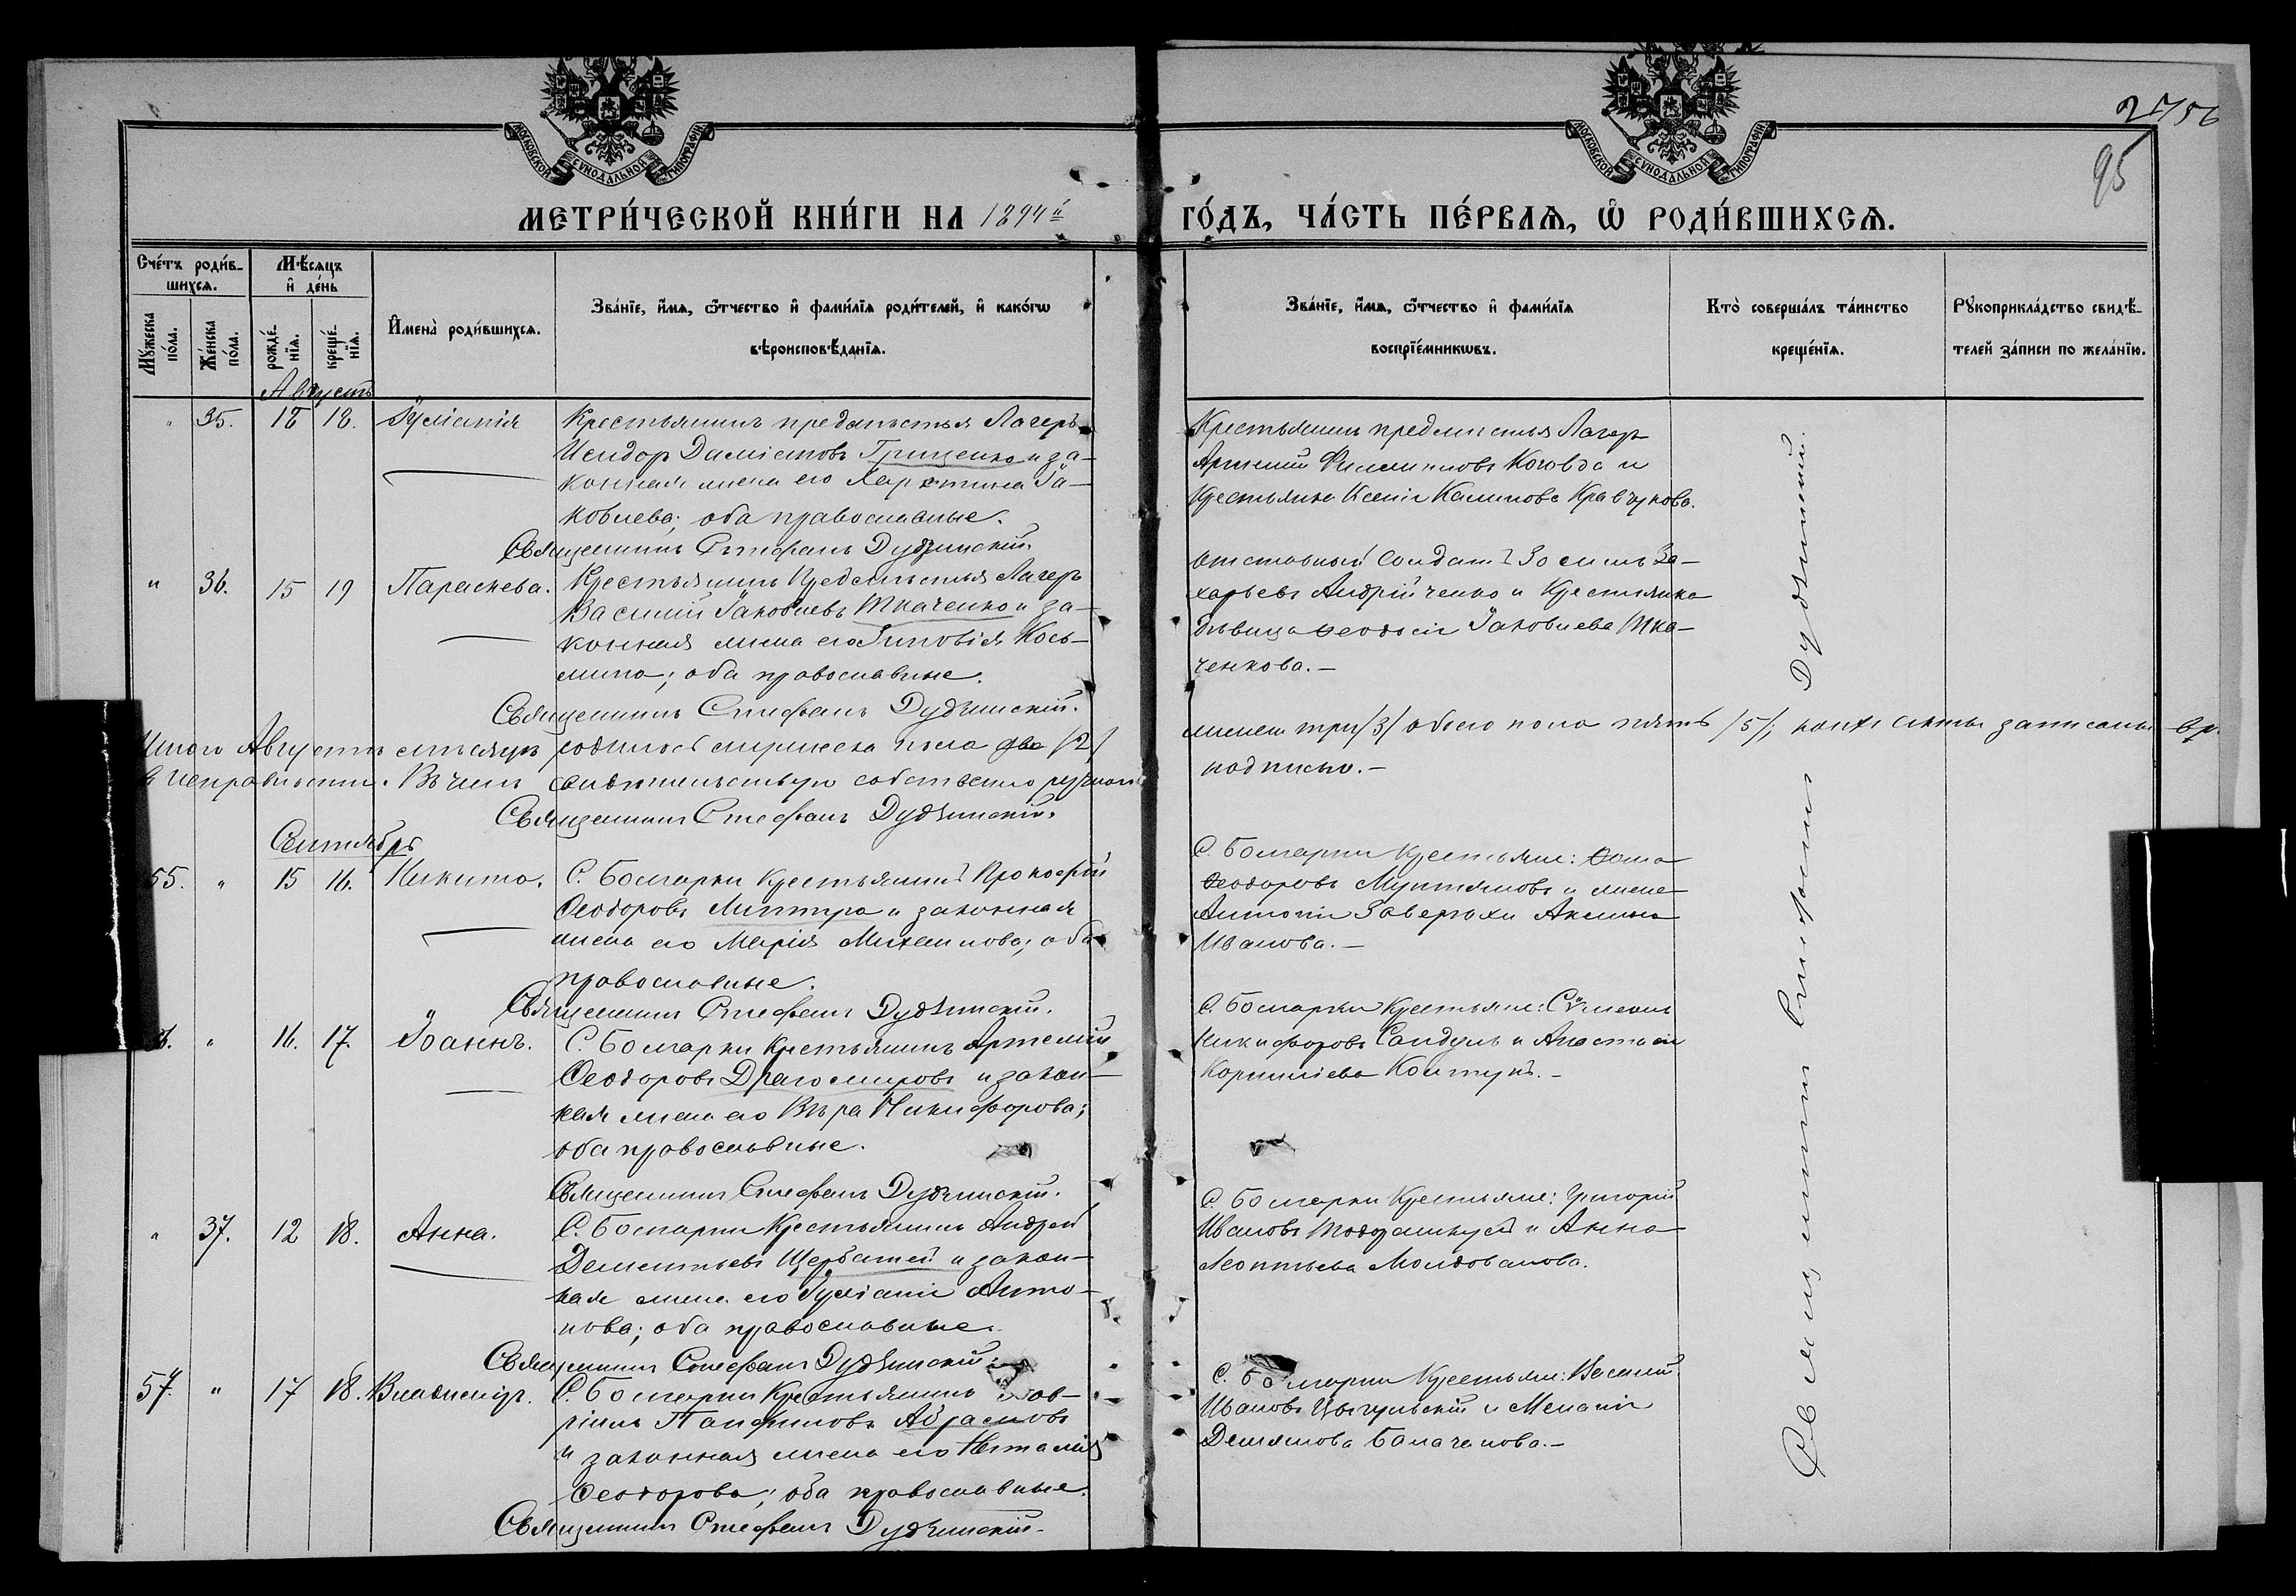 МОСКОВСКОЙ СУНОДАЛЬНОЙ ТИПОГРАФІИ
МОСКОВСКОЙ СУНОДАЛЬНОЙ ТИПОГРАФІИ
95
МЕТРИ́ЧЕСКОЙ КНИ́ГИ НА 1894й
ГО́ДЪ, ЧА́СТЬ ПЕ́РВАѦ, Ѽ РОДИ́ВШИХСѦ.
Сче́тъ роди́в-
шихсѧ.
Му́жеска по́ла.
Же́нска по́ла.
Мѣ́сѧцъ
и҆ де́нь
рожде́-
нїѧ.
креще́-
нїѧ.
И҆мена̀ роди́вшихсѧ.
Зва́нїе, и҆́мѧ, ѻ҆́тчество и҆ фами́лїѧ роди́телей, и҆ како́гѡ
вѣроисповѣ́данїѧ.
Зва́нїе, и҆́мѧ, ѻ҆́тчество и҆ фами́лїѧ
воспрїе́мникѡвъ.
Кто̀ соверша́лъ та́инство
креще́нїѧ.
Рꙋкоприкла́дство свидѣ́-
телей за́писи по жела́нїю.
Августъ
" 35. 18. Іуліанія
Крестьянинъ предмѣстья Лагерь
Исидоръ Даміановъ Гриценко и за-
конная жена его Харитина Іа-
ковлева; оба православные.
Священникъ Стефанъ Дудзинскій.
Крестьянинъ предмѣстья Лагерь
Артемій Филипповъ и
Крестьянка Ксенія Калинова Кравчукова.
" 36. 15 19 Параскева.
Крестьянинъ Предмѣстья Лагерь
Василій Іаковлевъ Ткаченко и за-
конная жена его Зиновія Кось-
мина; оба православные.
Священникъ Стефанъ Дудзинскій.
отставный солдатъ Зосимъ За-
харьевъ Андрійченко и Крестьянка
дѣвица Ѳеодосія Іаковлева Тка-
ченкова.—
Итого Августъ мѣсяцъ родилось мужеска пола два /2/
женска три /3/ обоего пола пять /5/, коихъ акты записаны вр.
Въ чемъ свидѣтельствую собственноручною
подписью.—
Священникъ Стефанъ Дудзинскій.
Сентябрь
55. " 15 16. Никита.
С. Болгарки Крестьянинъ Прокофій
Ѳеодоровъ и законная
жена его Марія Михаилова; оба
православные.
Священникъ Стефанъ Дудзинскій.
С. Болгарки Крестьяне: Ѳома
Ѳеодоровъ Мунтяновъ и жена
Антонія Заверюхи Акилина
Иванова.—
" 16. 17. Іоаннъ.
С. Болгарки Крестьянинъ Артемій
Ѳеодоровъ Драгомировъ и закон-
ная жена его Вѣра Никифорова;
оба православные.
Священникъ Стефанъ Дудзинскій.
С. Болгарки Крестьяне: Сѵмеонъ
Никифоровъ Сандулъ и Анастасія
Корниліева Колтукъ.—
" 37. 12 18. Анна.
С. Болгарки Крестьянинъ Андрей
Дементьевъ Щербатей и закон-
ная жена его Іуліанія Анто-
нова; оба православные.
Священникъ Стефанъ Дудзинскій.
С. Болгарки Крестьяне: Григорій
Ивановъ и Анна
Леонтьева Молдованова.
57. " 17 18. Владиміръ.
С. Болгарки Крестьянинъ Гав-
ріилъ Панфиловъ Абрамовъ
и законная жена его Наталія
Ѳеодорова; оба православные.
Священникъ Стефанъ Дудзинскій.
С. Болгарки Крестьяне: Василій
Ивановъ Цыгульскій и Меланія
Демянова Балачанова.—
Священникъ Стефанъ Дудзинскій.